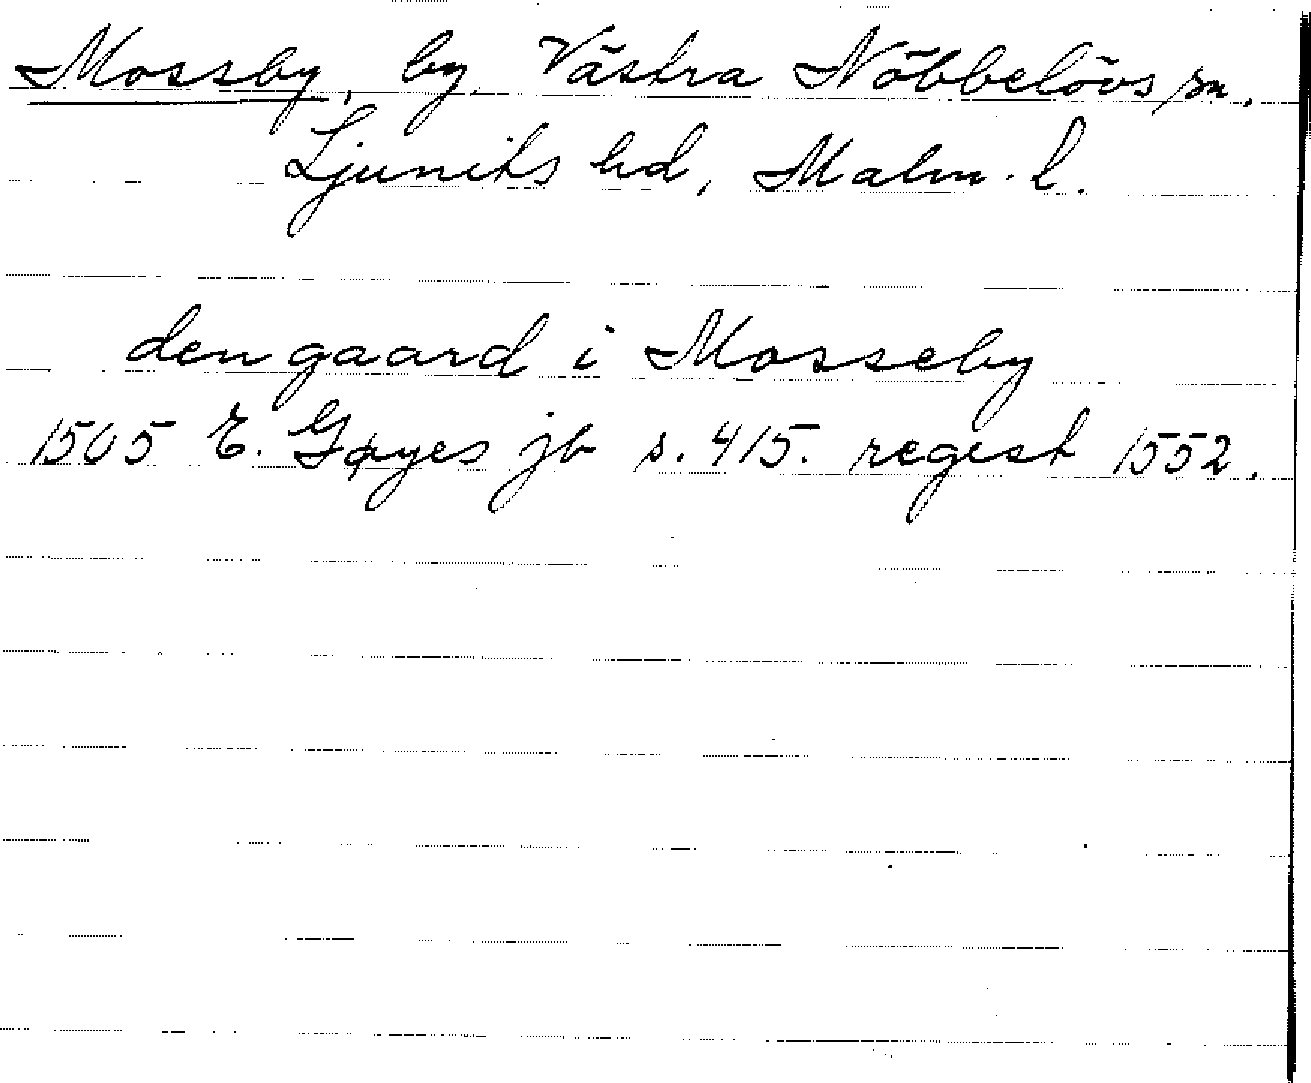 Mossby, by, Västra Nöbbelövs sn.
Ljunits hd, Malm. l.
den gaard i Mosseby
1505 E. Gøyes jb s. 415. regest 1552.